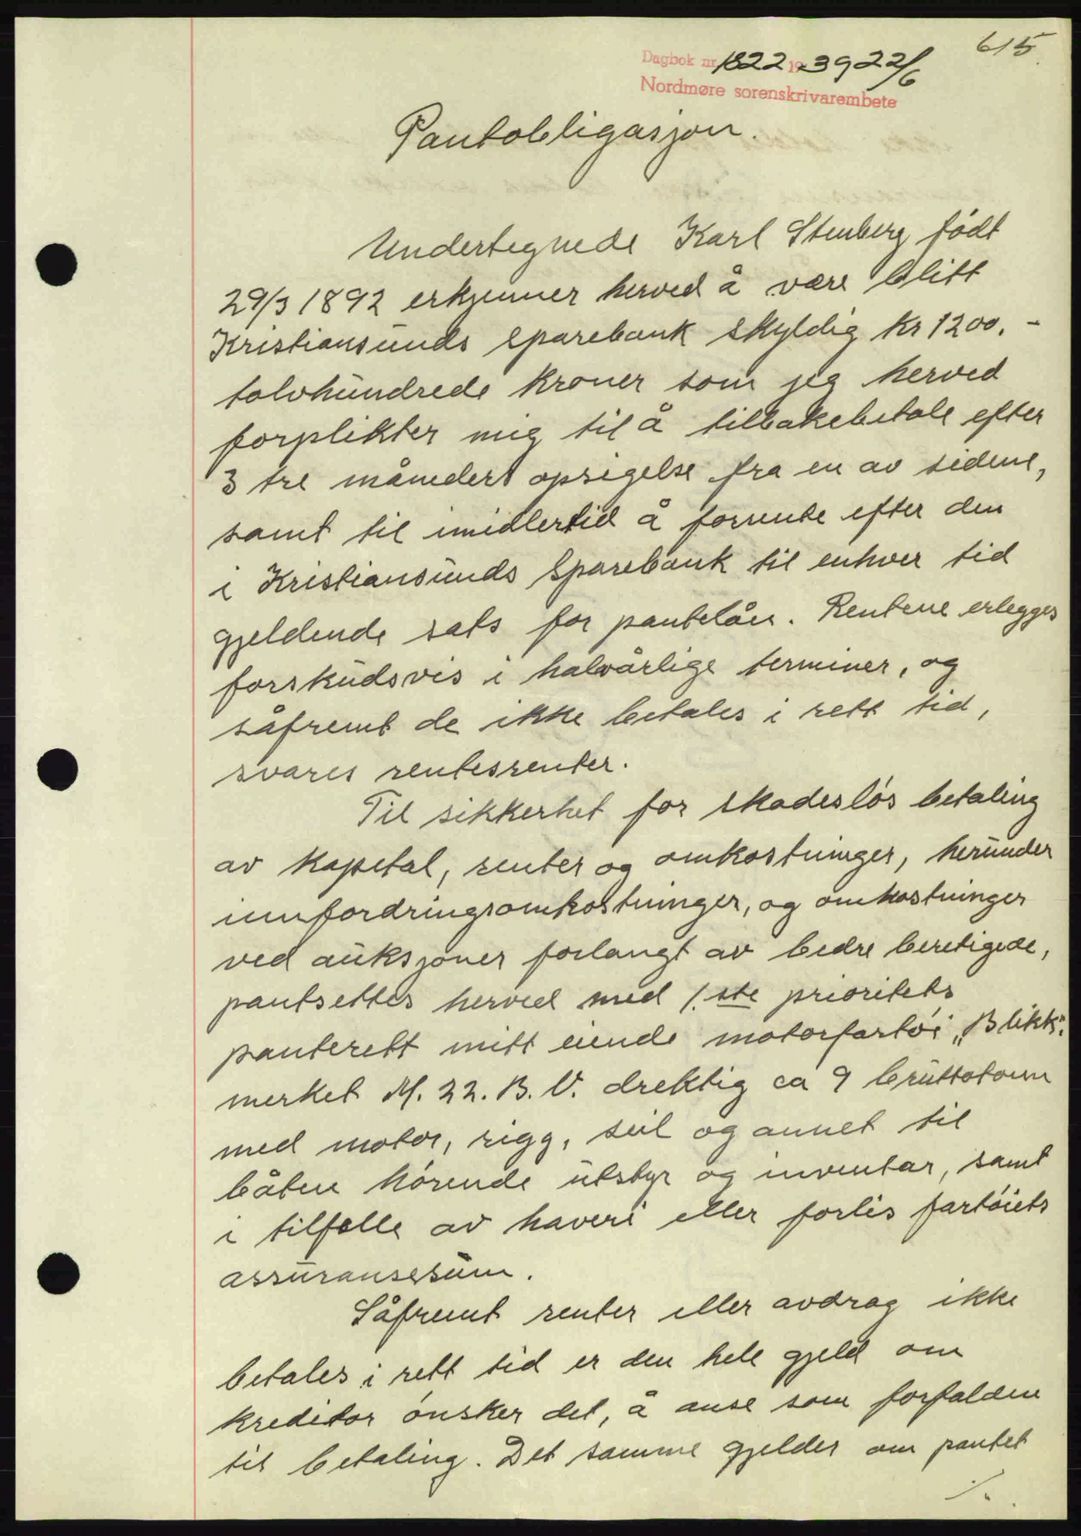 615
Dagbok nr. 1822 1939 22/6
Nordmøre sorenskrivarembete
Pantobligasjon.
Undertegnede Karl Stenberg født
29/3 1892 erkjenner herved å være blitt
Kristiansunds Sparebank skyldig kr 1200.-
tolvhundrede kroner som jeg herved
forplikter mig til å tilbakebetale efter
3 tre måneders opsigelse fra en av sidene,
samt til imidlertid å forrente efter den
i Kristiansunds Sparebank til enhver tid
gjeldende sats for pantelån. Rentene erlegges
forskudsvis i halvårlige terminer, og
såfremt de ikke betales i rett tid,
svares rentesrenter.
Til sikkerhet for skadesløs betaling
av kapital, renter og omkostninger, herunder
innfordringsomkostninger, og omkostninger
ved auksjoner forlangt av bedre beretigede,
pantsettes herved med 1.ste prioritets
panterett mitt eiende motorfartøi „Blikk".
merket M. 22. B. V. drektig ca 9 bruttotonn
med motor, rigg, seil og annet til
båten hørende utstyr og inventar, samt
i tilfelle av haveri eller forlis fartøiets
assuransesum.
Såfremt renter eller avdrag ikke
betales i rett tid er den hele gjeld om
kreditor ønsker det, å anse som forfalden
til betaling. Det samme gjelder om pantet
./.